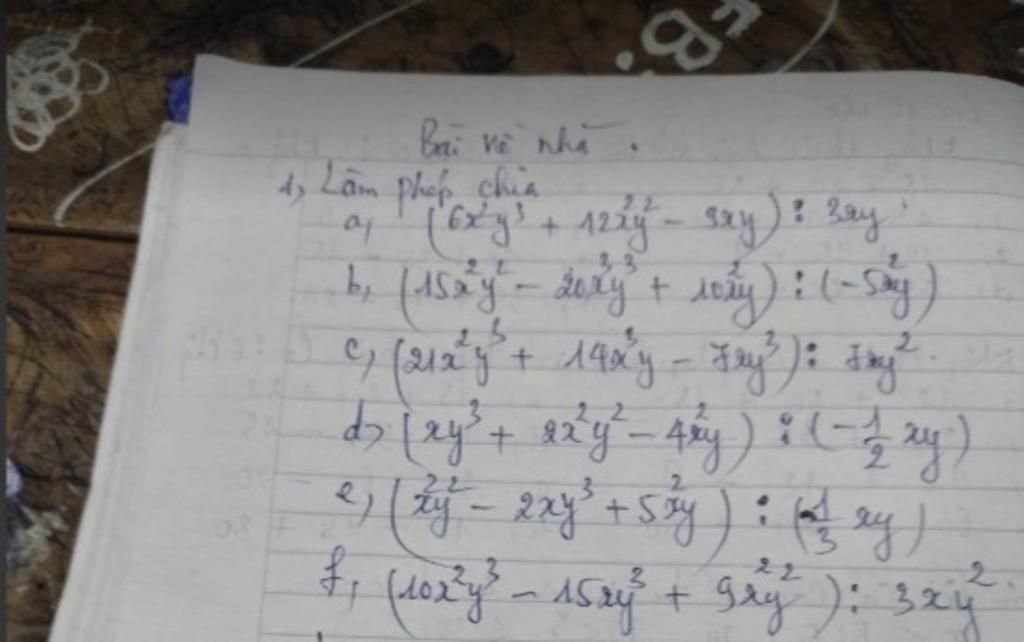 Bài về nhà.
1, Làm phép chia
a, (6x²y³ + 12x²y² - 9xy) : 3xy
b, (15x²y² - 20x³y³ + 10x²y) : (-5x²y)
c, (21x²y³ + 14x³y - 7xy³) : 7xy²
d, (xy³ + 2x²y² - 4x²y) : (-1/2 xy)
e, (x²y² - 2xy³ + 5x²y) : (-1/3 xy)
f, (10x²y³ - 15xy³ + 9x²y²) : 3xy²